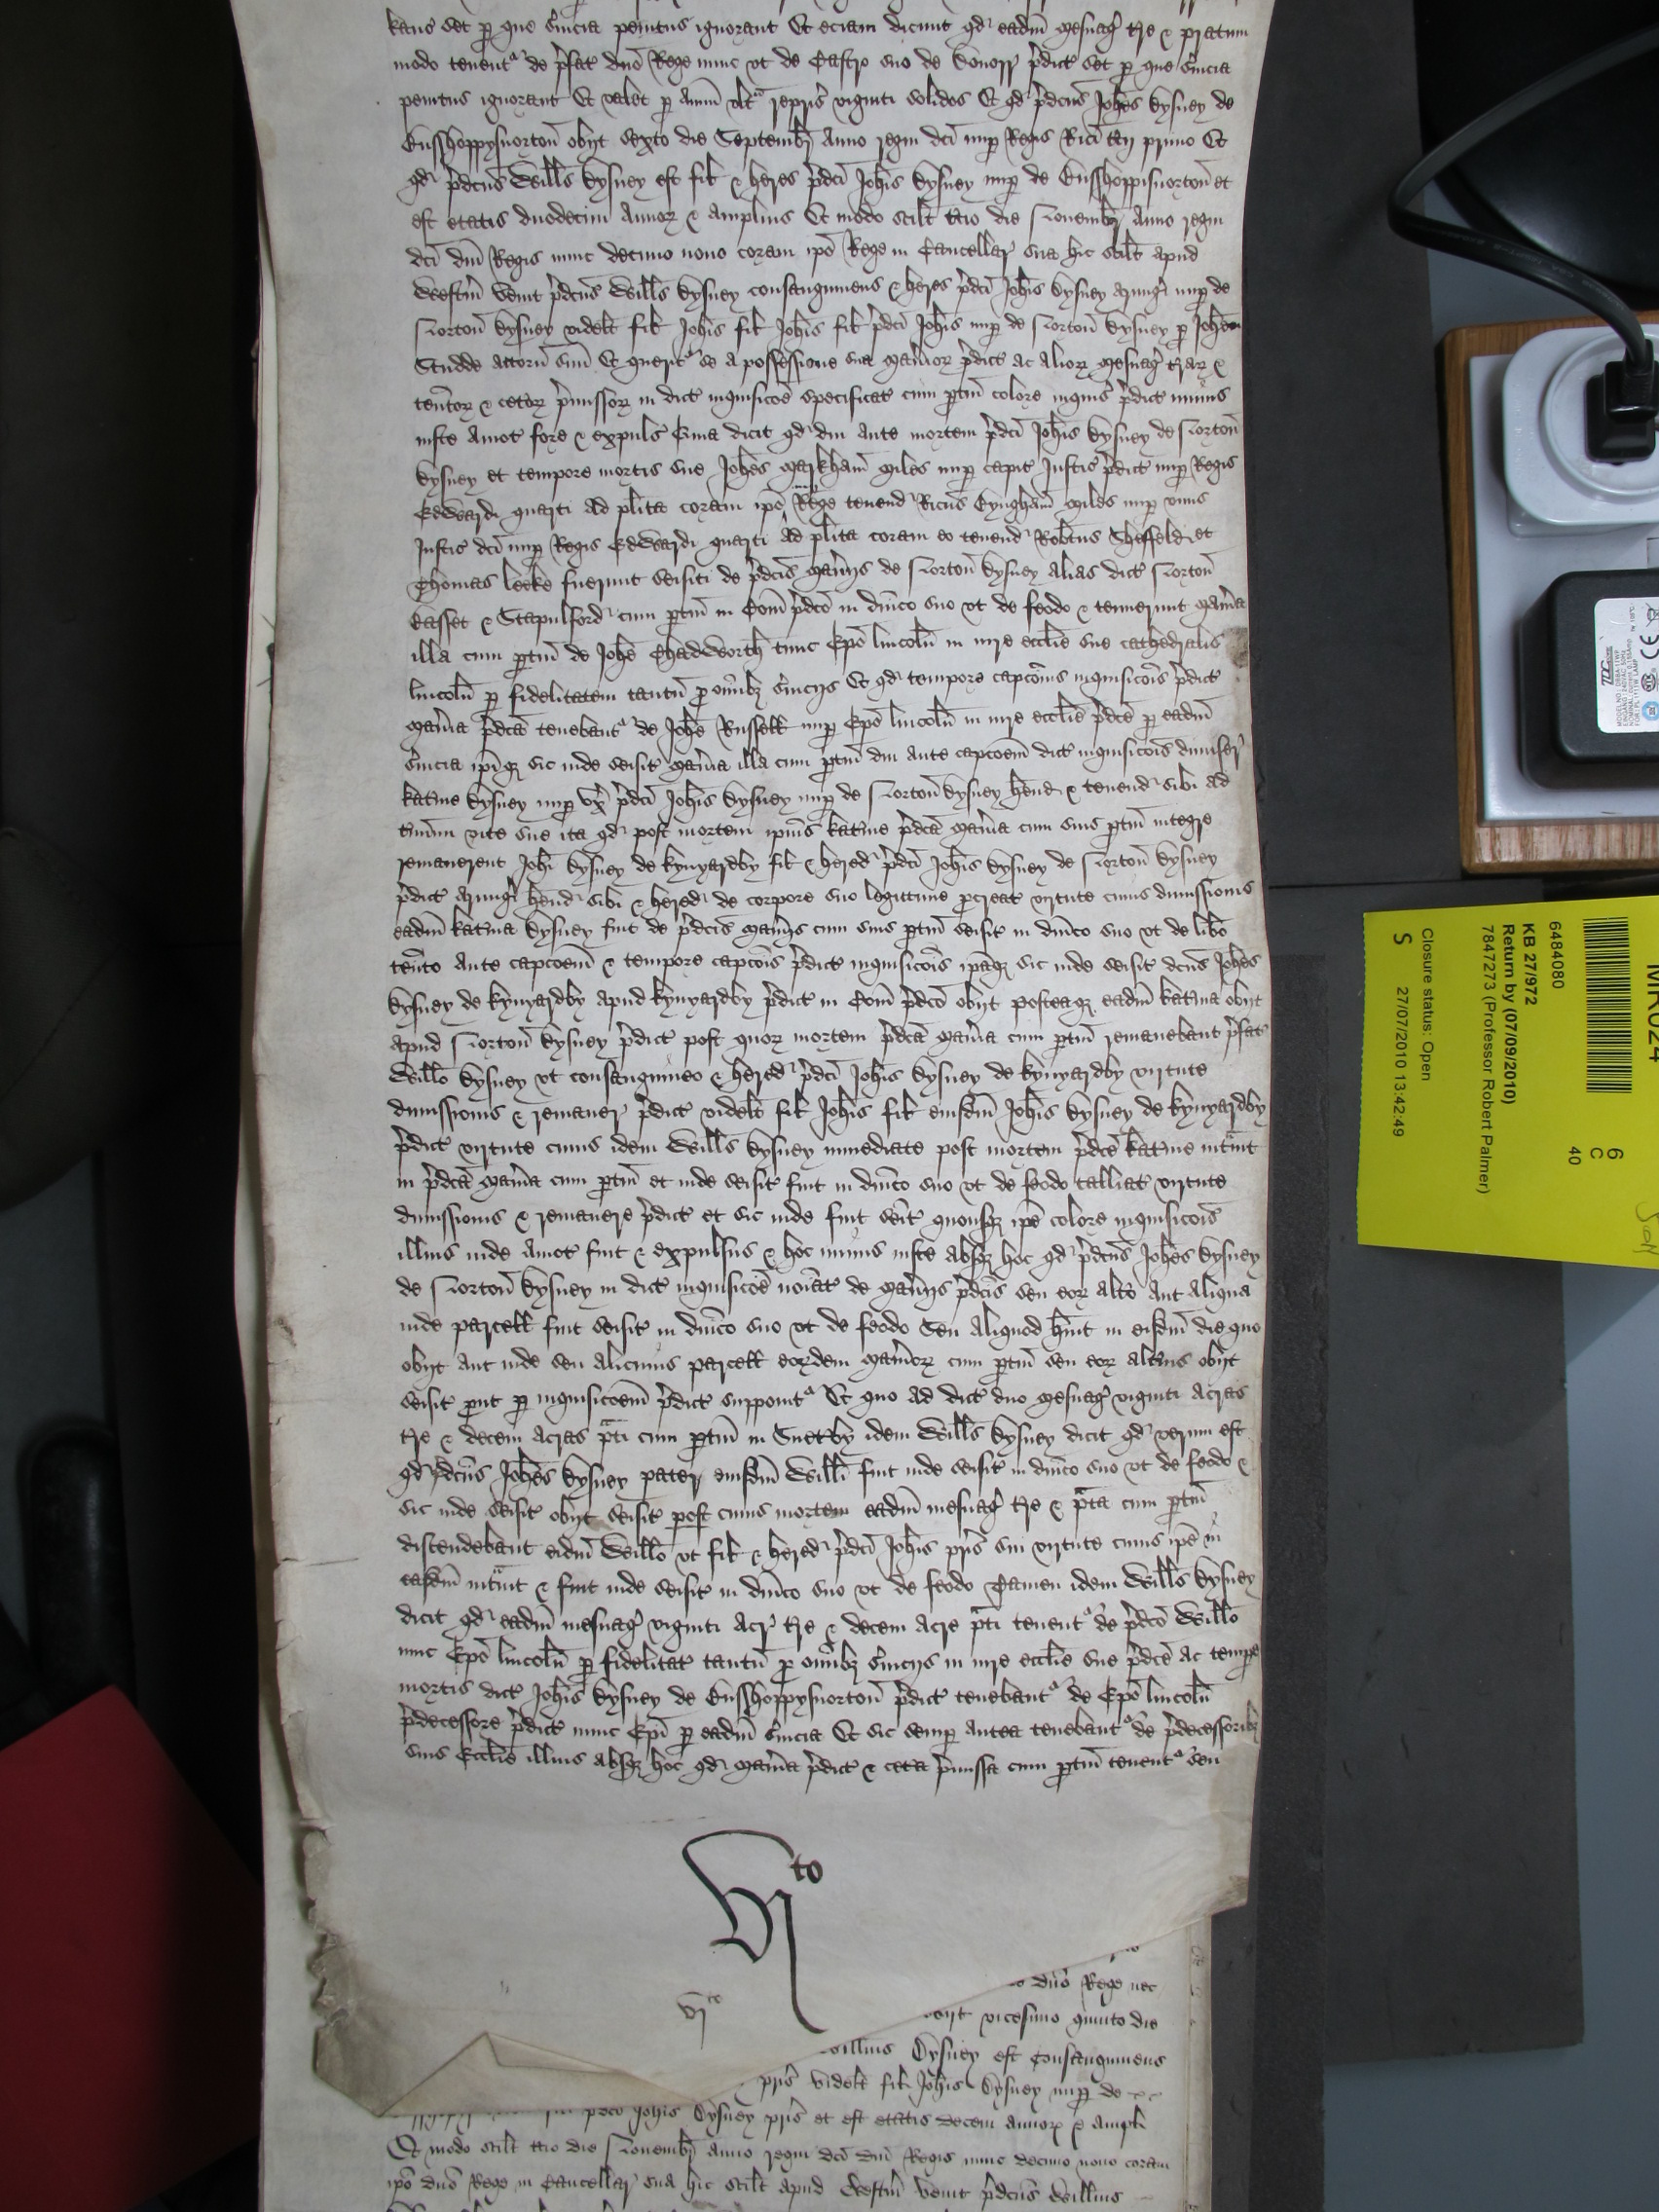 kans set p que s'uicia penitus ignorant Et eciam dicunt qd eadm mesuag' t're & pratum
modo tenent' de p'fat dno Rege nunc vt de Castro suo de Bonorr p'dict set p que s'uicia
penitus ignorant Et valet p Annu vlt' repris' viginti solidos Et qd p'dcus Johes Dysney de
Busshoppysnorton obijt sexto die Septembr' Anno regni dci nup Regis Rici t'cij primo Et
qd p'dcus Wills Dysney est fil & heres p'dci Johis Dysney nup de Busshoppisnorton et
est etatis duodecim Annor & amplius Et modo scilt t'cio die Nouembr' Anno regni
dci dni Regis nunc decimo nono coram ipo Rege in Cancellar' sua hic scilt apud
Westm venit p'dcus Wills Dysney consanguineus & heres p'dci Johis Dysney Armig'i nup de
Norton Dysney videlt fil Johis fil Johis fil p'dci Johis nup de Norton Dysney p Johem
Studde attorn suu Et querit' se a possessione sua Man'ior p'dict ac alior mesuag' t'rar &
ten'tor & cetor p'missor in dict inquisicoe specificat cum ptin colore inquis' p'dict minus
iuste Amot fore & expuls' Quia dicit qd diu ante mortem p'dci Johis Dysney de Norton
Dysney et tempore mortis sue Johes Markham Miles nup capit' Justic' p'dict nup Regis
Edwardi quarti Ad plita coram ipo Rege tenend Ricus Byngham Miles nup vnus
Justic' dci nup Regis Edwardi quarti Ad plita coram eo tenend Robtus Sheffeld et
Thomas Leeke fuerunt seisiti de p'dcis Man'ijs de Norton Dysney Alias dict Norton
Basset & Stapulford cum ptin in Com p'dco in dnico suo vt de feodo & tenuerunt Man'ia
illa cum ptin de Johe Chadworth tunc Epo Lincoln in iure ecclie sue cathedralis
Lincoln p fidelitatem tantu p omib3 s'uicijs Et qd tempore capcois inquisicois p'dict
Man'ia p'dca tenebant' de Johe Russell nup Epo Lincoln in iure ecclie p'dce p eadm
s'uicia ipiq3 sic inde seisit' Man'ia illa cum ptin diu ante capcoem dict inquisicois dimiser'
Kat'ine Dysney nup vx' p'dci Johis Dysney nup de Norton Dysney hend & tenend sibi ad
t'minu vite sue ita qd post mortem ipius Kat'ine p'dca Man'ia cum suis ptin integre
remanerent Johi Dysney de Kynyardby fil & hered p'dci Johis Dysney de Norton Dysney
p'dict Armig'i hend sibi & hered de corpore suo legittime pcreat virtute cuius dimissionis
eadm Kat'ina Dysney fuit de p'dcis Man'ijs cum suis ptin seisit' in dnico suo vt de libo
ten'to Ante capcoem & tempore capcois p'dict inquisicois ipaq3 sic inde seisit' dcus Johes
Dysney de Kynyardby apud Kynyardby p'dict in Com p'dco obijt posteaq3 eadm Kat'ina obijt
apud Norton Dysney p'dict post quor mortem p'dca Man'ia cum ptin remanebant p'fat
Willo Dysney vt consanguineo & hered p'dci Johis Dysney de Kynyardby virtute
dimissionis & remaner' p'dict videlt fil Johis fil eiusdm Johis Dysney de Kynyardby
p'dict virtute cuius idem Wills Dysney immediate post mortem p'dce Kat'ine int'uit
in p'dca Man'ia cum ptin et inde seisit' fuit in dnico suo vt de feodo talliat virtute
dimissionis & remanere p'dict et sic inde fuit seit' quousq3 ipe colore inquisicois
illius inde Amot fuit & expulsus & hoc minus iuste absq3 hoc qd p'dcus Johes Dysney
de Norton Dysney in dict inquisicoe noiat de Man'ijs p'dcis seu eor alt'o Aut Aliqua
inde parcell fuit seisit' in dnico suo vt de feodo Seu Aliquod huit in eisdm die quo
obijt aut inde seu alicuius parcell eordem Man'ior cum ptin seu eor alt'ius obijt
seisit' put p inquisicoem p'dict supponit' Et quo ad dict duo mesuag' viginti acras
t're & decem acras p'ti cum ptin in Snetby idem Wills Dysney dicit qd verum est
qd p'dcus Johes Dysney pater eiusdm Willi fuit inde seisit' in dnico suo vt de feodo &
sic inde seisit' obijt seisit' post cuius mortem eadm mesuag' t're & p'ta cum ptin
discendebant eidm Willo vt fil & hered p'dci Johis pris sui virtute cuius ipe in
easdm int'uit & fuit inde seisit' in dnico suo vt de feodo Tamen idem Wills Dysney
dicit qd eadm mesuag' viginti Acr' t're & decem Acre p'ti tenent' de p'dco Willo
nunc Epo Lincoln p fidelitat tantu p omib3 s'uicijs in iure ecclie sue p'dce Ac tempe
mortis dict Johis Dysney de Busshoppysnorton p'dict tenebant' de Epo Lincoln
p'decessore p'dict nunc Epi p eadm s'uicia Et sic semp Antea tenebant' de p'decessorib3
suis Ecclie illius absq3 hoc qd Man'ia p'dict & ceta p'missa cum ptin tenent' seu
vjto
vjto
dno Rege nec
obijt vicesimo quinto die
Willius Dysney est Consanguineus
pris videlt fil Johis Dysney nup de
p'dco Johis Dysney pris et est etatis decem annor & ampli
Et modo scilt t'cio die Nouembr' anno regni dci dni Regis nunc decimo nono coram
ipo dno Rege in Cancellar' sua hic scilt apud Westm venit p'dcus Willius
6484080
KB 27/972
Return by (07/09/2010)
7847273 (Professor Robert Palmer)
Closure status: Open
S 27/07/2010 13:42:49
6
C
40
MR024